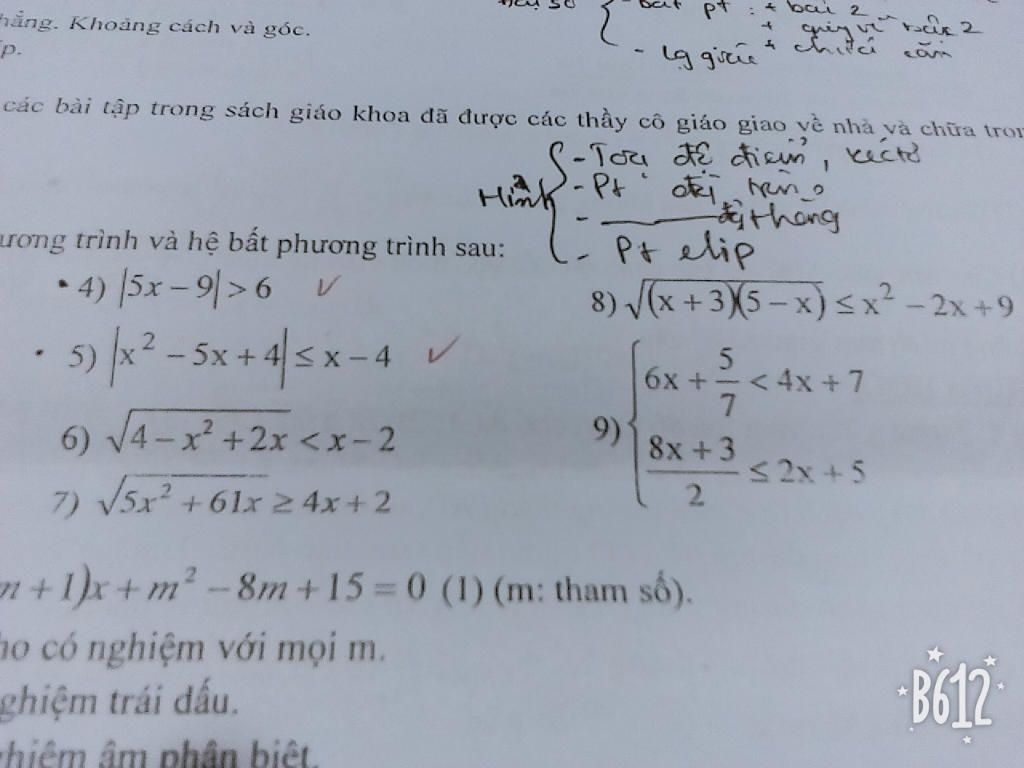 - bất pt : + bậc 2
+ quy về bậc 2
- lg giác + chứa căn
hẳng. Khoảng cách và góc.
íp.
các bài tập trong sách giáo khoa đã được các thầy cô giáo giao về nhà và chữa tron
Hình
- Toạ độ điểm, véctơ
- Pt đg tròn
- ——— đg thẳng
- Pt elip
ương trình và hệ bất phương trình sau:
4) |5x − 9| > 6 ✓
5) |x² − 5x + 4| ≤ x − 4 ✓
6) √(4 − x² + 2x) < x − 2
7) √(5x² + 61x) ≥ 4x + 2
8) √((x + 3)(5 − x)) ≤ x² − 2x + 9
9) { 6x + 5/7 < 4x + 7
(8x + 3)/2 ≤ 2x + 5
m + 1)x + m² − 8m + 15 = 0 (1) (m: tham số).
ho có nghiệm với mọi m.
ghiệm trái dấu.
ghiệm âm phân biệt.
B612